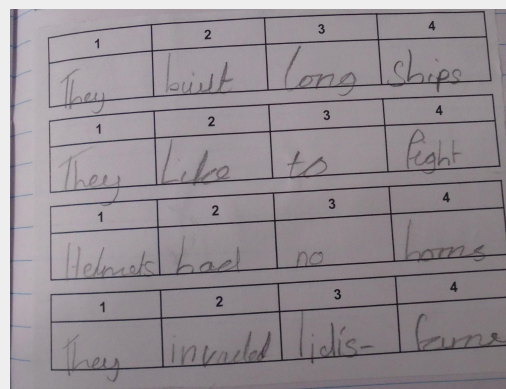 1 2 3 4
They built long ships
1 2 3 4
They Like to fight
1 2 3 4
Helmets had no horns
1 2 3 4
They invaded lidis- farne